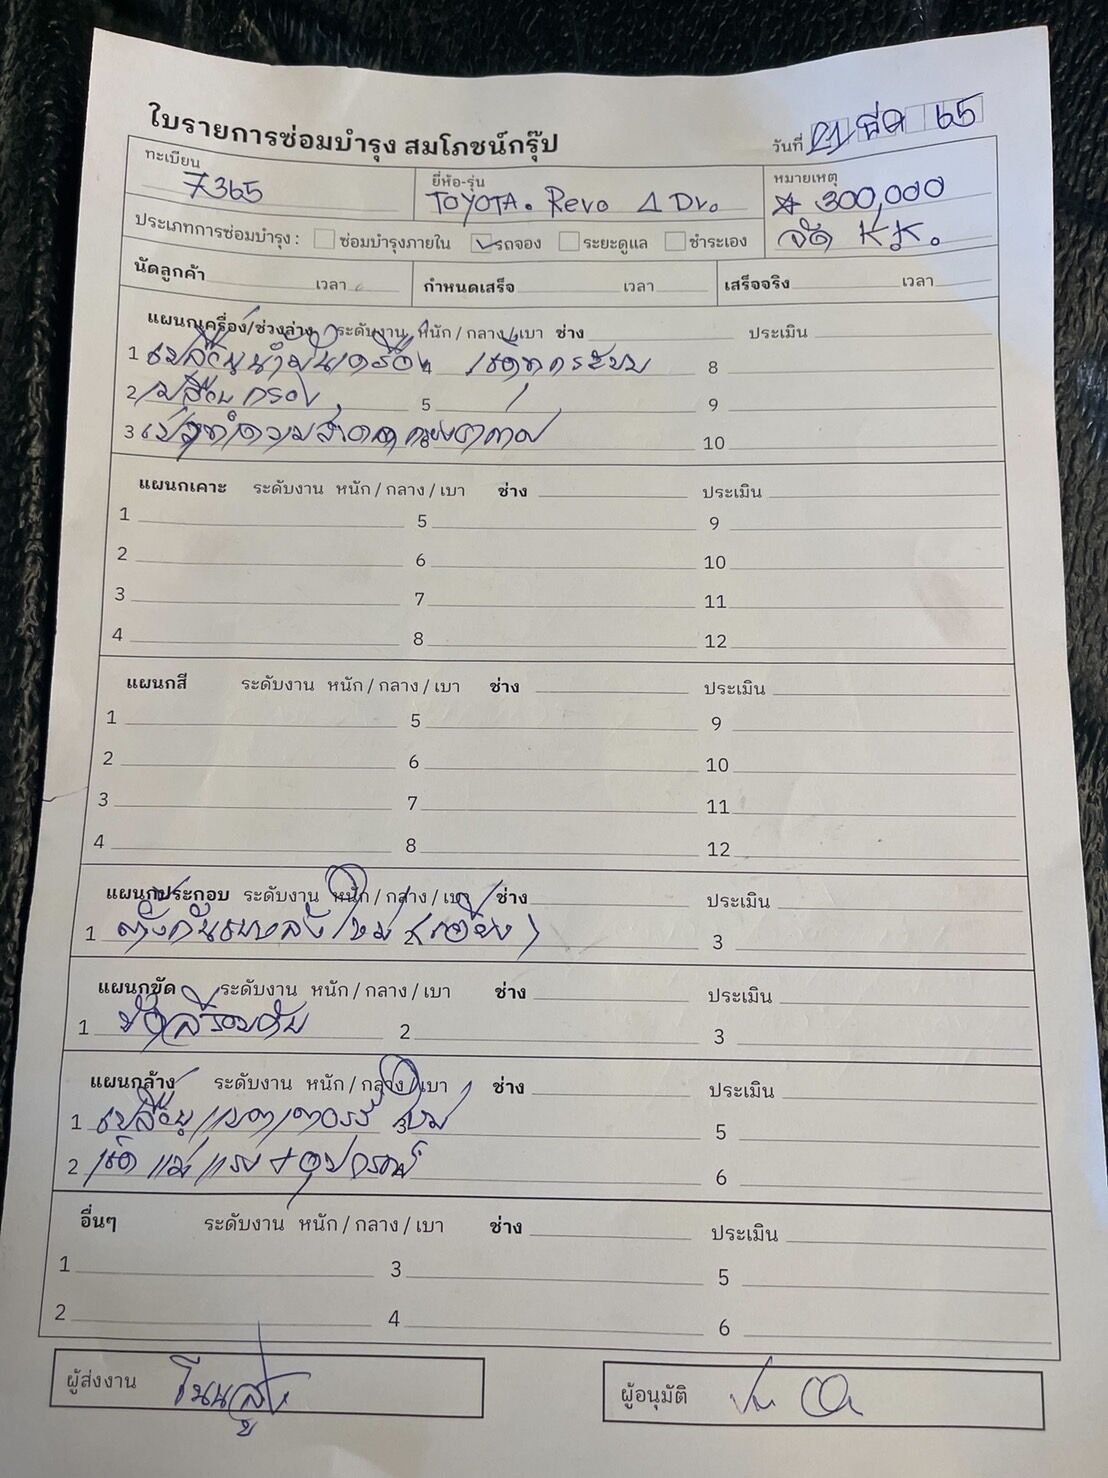 ใบรายการซ่อมบำรุง สมโภชน์กรุ๊ป
วันที่ 21 65
ทะเบียน 7365
ยี่ห้อ-รุ่น TOYOTA. Revo 4 Dr.
หมายเหตุ 300,000
จัด KK.
ประเภทการซ่อมบำรุง : ซ่อมบำรุงภายใน รถจอง ระยะดูแล ชำระเอง
นัดลูกค้า เวลา กำหนดเสร็จ เวลา เสร็จจริง เวลา
แผนกเครื่อง/ช่วงล่าง ระดับงาน หนัก / กลาง / เบา ช่าง ประเมิน
1 เปลี่ยนน้ำมันเครื่อง 4 เช็คทุกระบบ 8
2 เปลี่ยนกรอง 5 9
3 ทำความสะอาด 10
แผนกเคาะ ระดับงาน หนัก / กลาง / เบา ช่าง ประเมิน
1 5 9
2 6 10
3 7 11
4 8 12
แผนกสี ระดับงาน หนัก / กลาง / เบา ช่าง ประเมิน
1 5 9
2 6 10
3 7 11
4 8 12
แผนกประกอบ ระดับงาน หนัก / กลาง / เบา ช่าง ประเมิน
1 กันชนหลังใหม่ 2 (เอียง) 3
แผนกขัด ระดับงาน หนัก / กลาง / เบา ช่าง ประเมิน
1 ขัดสีรอบคัน 2 3
แผนกล้าง ระดับงาน หนัก / กลาง / เบา ช่าง ประเมิน
1 เปลี่ยนแบตเตอรรี่ 3 ใหม่ 5
2 เช็คแม่แรง + อุปกรณ์ 6
อื่นๆ ระดับงาน หนัก / กลาง / เบา ช่าง ประเมิน
1 3 5
2 4 6
ผู้ส่งงาน
ผู้อนุมัติ